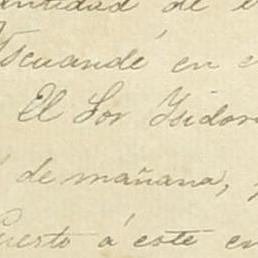 antidad de e
Yscuandé en e
El Sor Ysidor
de mañana,
Puerto á este en